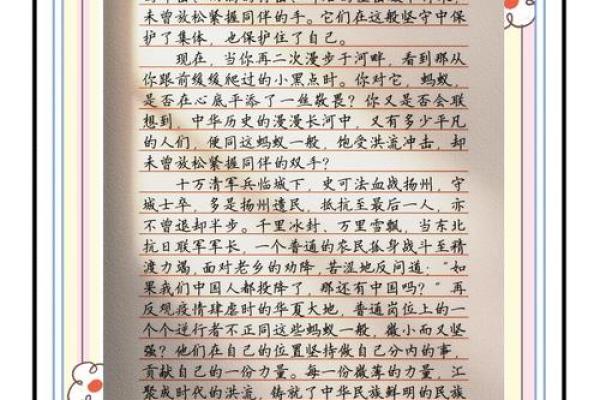 未曾放松紧握同伴的手。它们在这般坚守中保
护了集体，也保护住了自己。
现在，当你再二次漫步于河畔，看到那从
你跟前缓缓爬过的小黑点时。你对它，蚂蚁，
是否在心底平添了一丝敬畏？你又是否会联
想到，中华历史的漫漫长河中，又有多少平凡
的人们，便同这蚂蚁一般，饱受洪流冲击，却
未曾放松紧握同伴的双手？
十万清军兵临城下，史可法血战扬州，守
城士卒，多是扬州遗民，抵抗至最后一人，亦
不曾退却半步。千里冰封、万里雪飘，当东北
抗日联军军长，一个普通的农民孤身战斗至精
渡力竭，面对老乡的劝降，苦涩地反问道：“如
果我们中国人都投降了，那还有中国吗？”再
反观疫情肆虐时的华夏大地，普通岗位上的一
个个逆行者不正同这些蚂蚁一般，微小而又坚
强？他们在自己的位置坚持做自己分内的事，
贡献自己的一份力量。每一份微薄的力量，汇
聚成时代的洪流，铸就了中华民族鲜明的民族